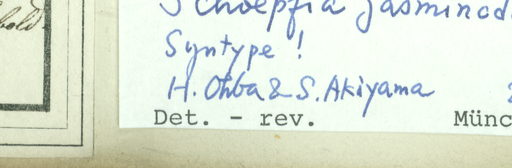 Schoepfia jasminod
Syntype !
H. Ohba & S. Akiyama
Det. - rev. Münc
bold.